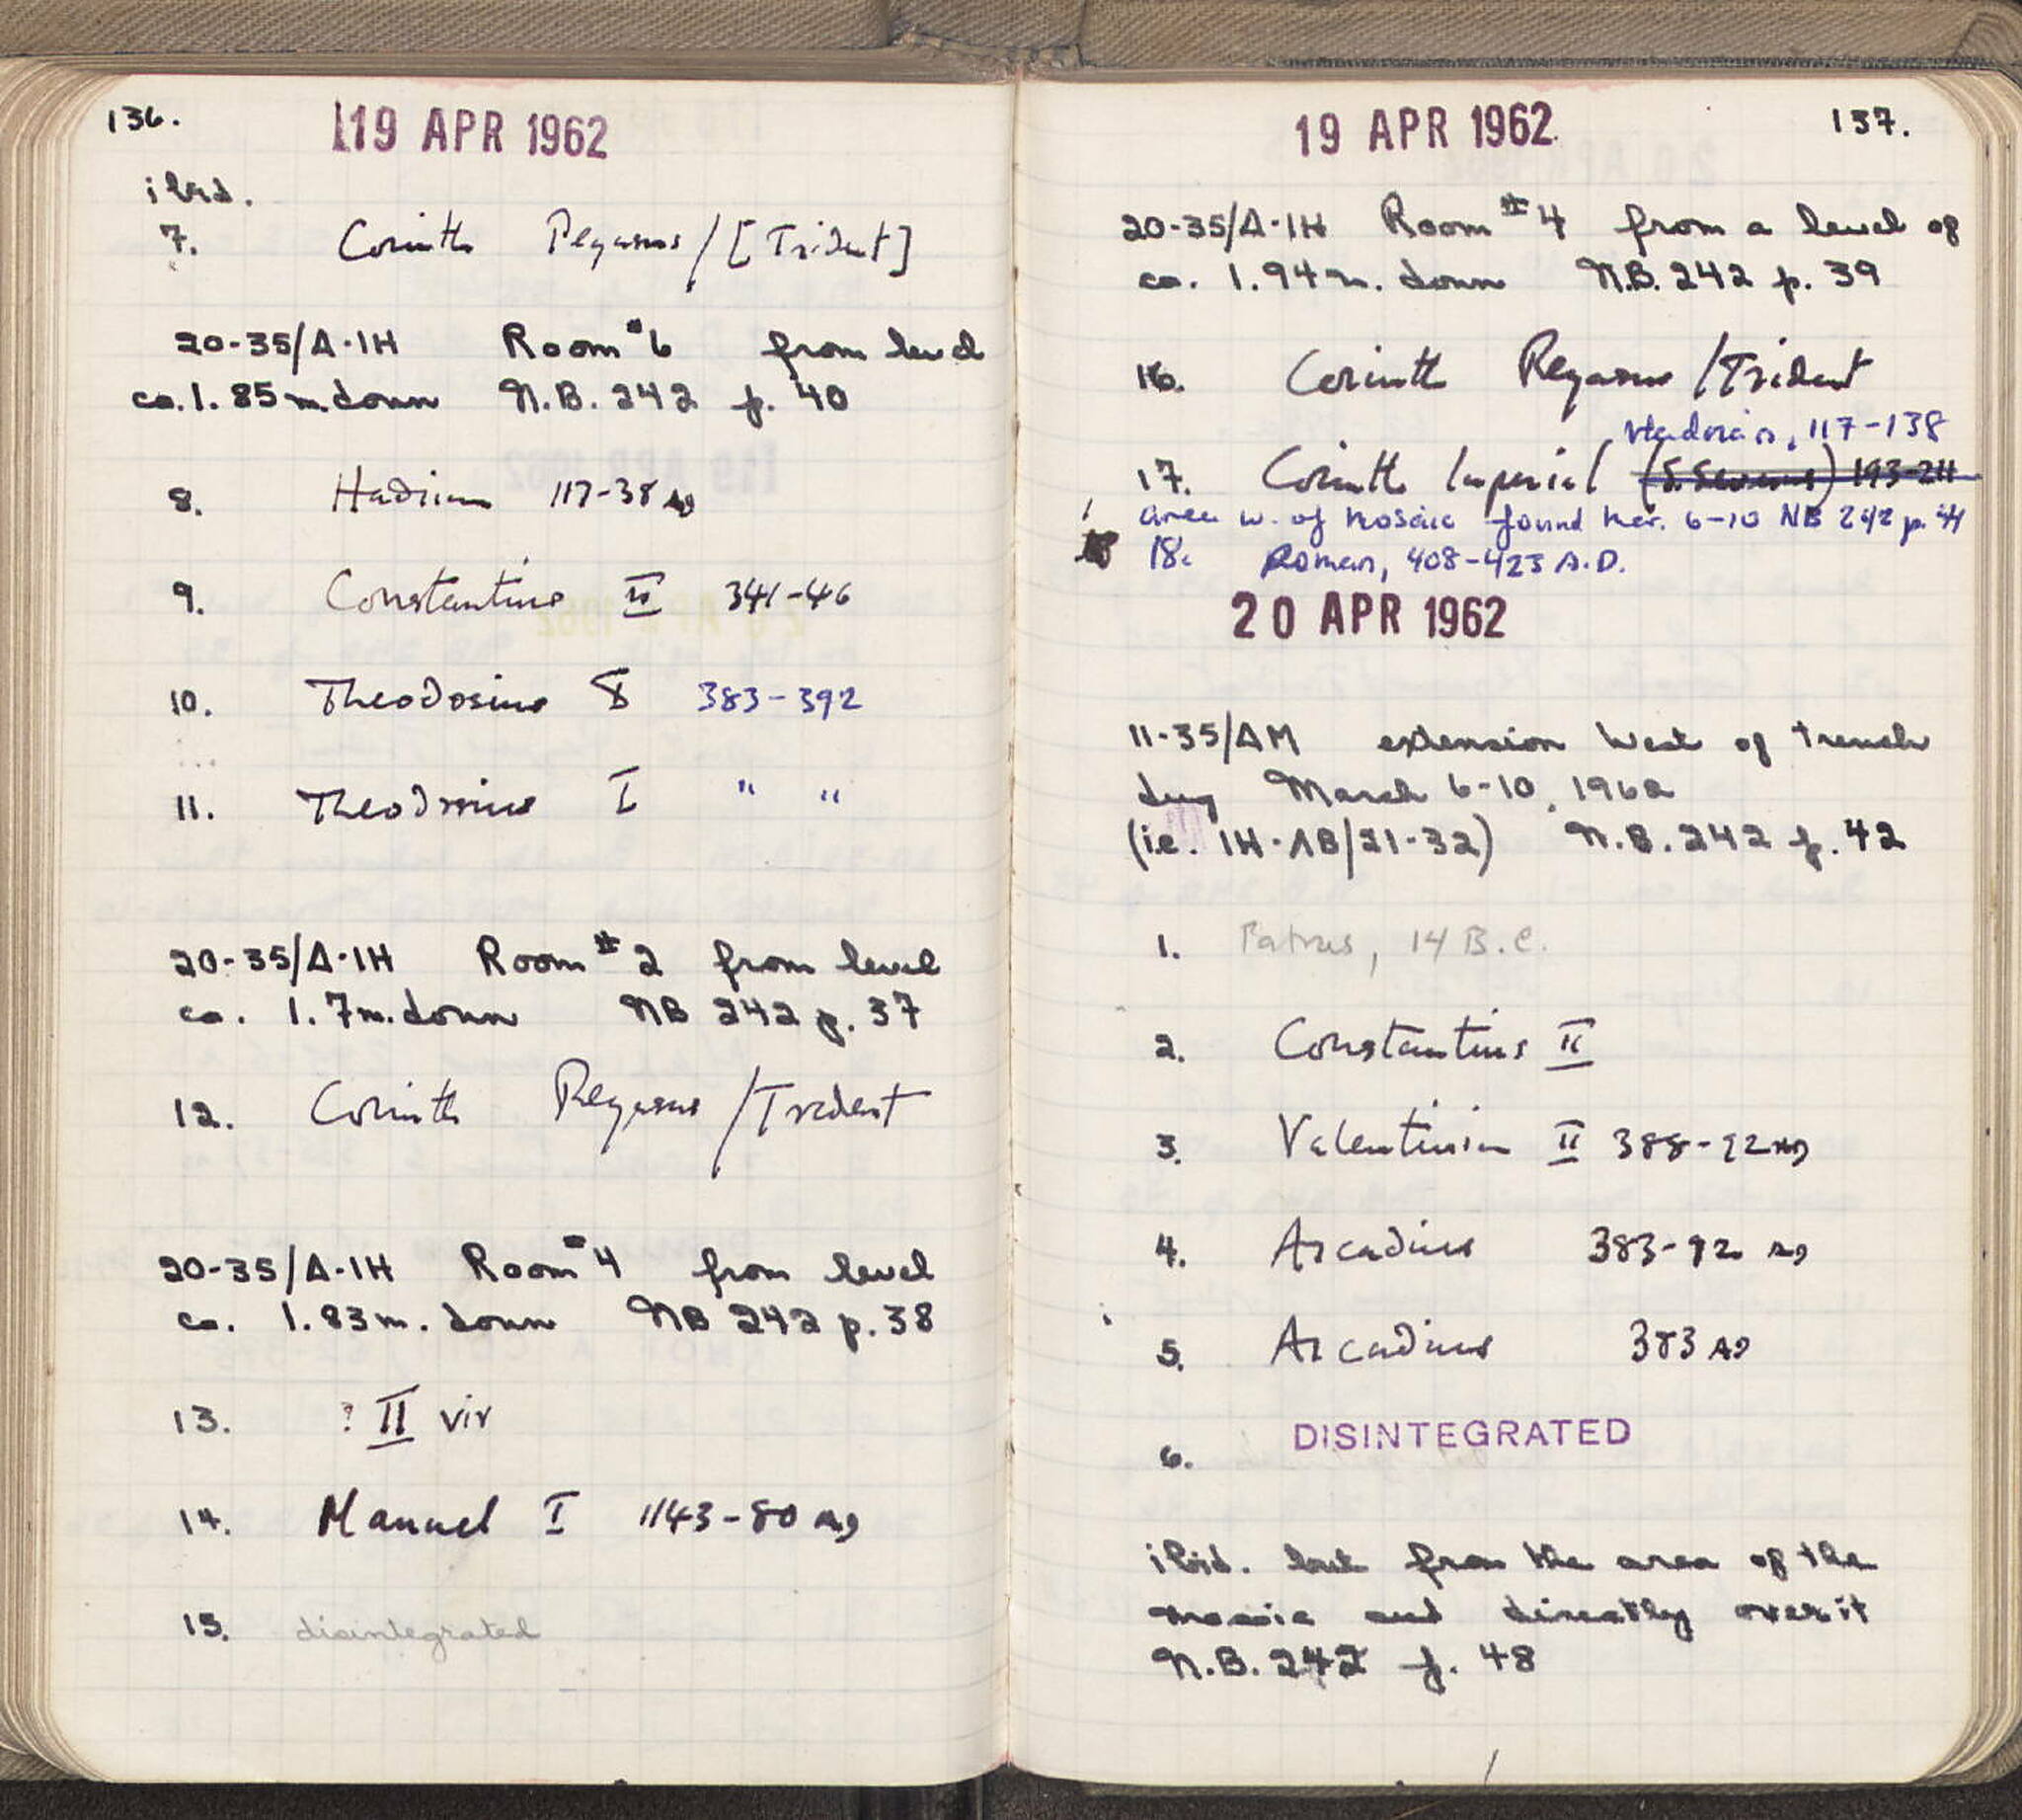 136.
19 APR 1962
ibid.
7. Corinth Pegasus/[Trident]
20-35/A-IH Room #6 from level
ca. 1.85 m. down N.B. 242 p. 40
8. Hadrian 117-38 AD
9. Constantius II 341-46
10. Theodosius I 383-392
11. Theodosius I " "
20-35/A-IH Room #2 from level
ca. 1.7m. down NB 242 p. 37
12. Corinth Pegasus/Trident
20-35/A-IH Room #4 from level
ca. 1.83m. down NB 242 p. 38
13. ? II vir
14. Manuel I 1143-80 AD
15. disintegrated
19 APR 1962
137.
20-35/A-IH Room #4 from a level of
ca. 1.94m. down N.B. 242 p. 39
16. Corinth Pegasus/Trident
Hadrian, 117-138
17. Corinth Imperial (S. Severus) 193-211
area w. of mosaic found Mar. 6-10 NB 242 p. 41
18. Roman, 408-423 A.D.
20 APR 1962
11-35/AM extension West of trench
dug March 6-10, 1962
(i.e. IH-AB/21-32) N.B. 242 p. 42
1. Patras, 14 B.C.
2. Constantius II
3. Valentinian II 388-92 AD
4. Arcadius 383-92 AD
5. Arcadius 383 AD
6. DISINTEGRATED
ibid. but from the area of the
mosaic and directly over it
N.B. 242 p. 48